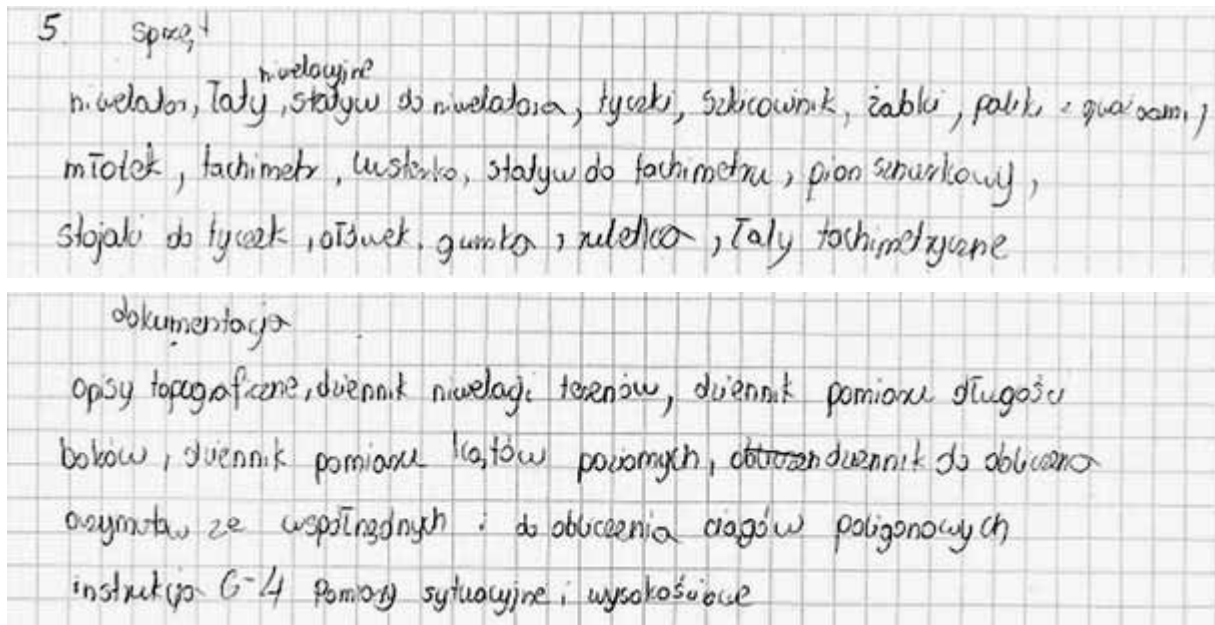 5. sprzęt
niwelator, łaty niwelacyjne, statyw do niwelatora, tyczki, szkicownik, żabki, paliki z gwoździami,
młotek, tachimetr, lusterko, statyw do tachimetru, pion sznurkowy,
stojaki do tyczek, ołówek, gumka, ruletka, łaty tachimetryczne
dokumentacja
opisy topograficzne, dziennik niwelacji terenów, dziennik pomiaru długości
boków, dziennik pomiaru kątów poziomych, dziennik do obliczenia
azymutów ze współrzędnych i do obliczenia ciągów poligonowych
instrukcja G-4 Pomiary sytuacyjne i wysokościowe